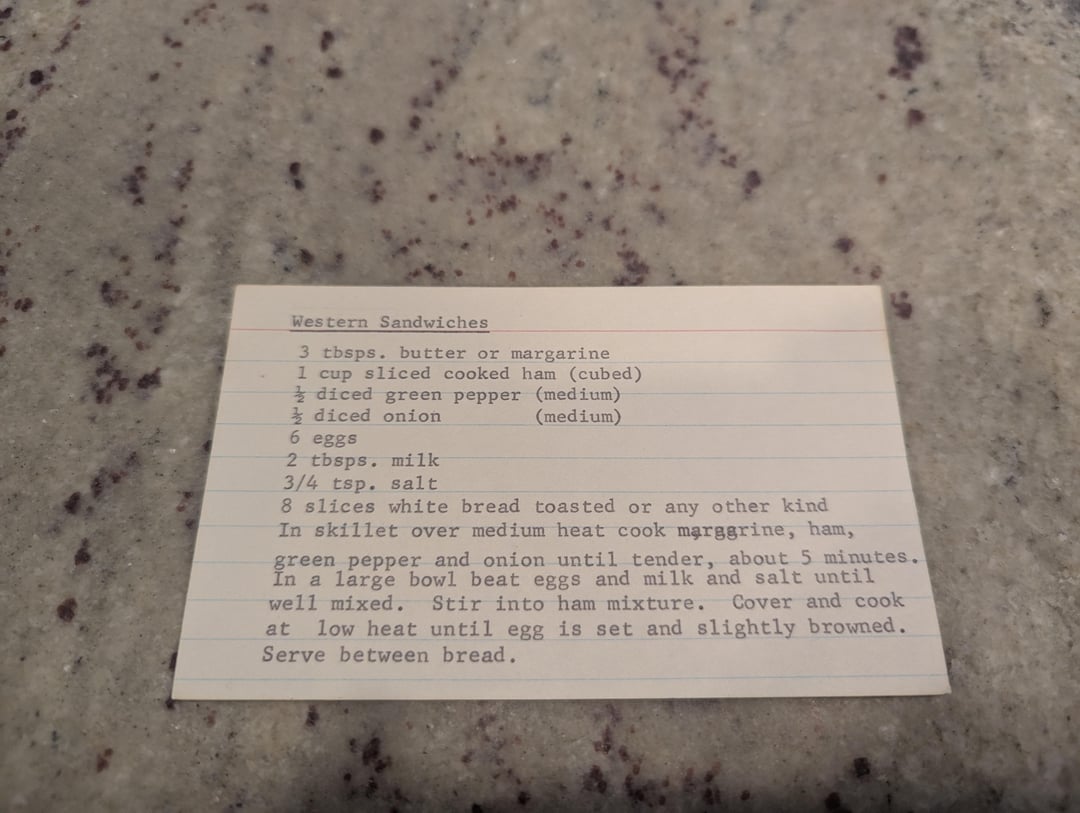 Western Sandwiches
3 tbsps. butter or margarine
1 cup sliced cooked ham (cubed)
½ diced green pepper (medium)
½ diced onion (medium)
6 eggs
2 tbsps. milk
3/4 tsp. salt
8 slices white bread toasted or any other kind
In skillet over medium heat cook margarine, ham,
green pepper and onion until tender, about 5 minutes.
In a large bowl beat eggs and milk and salt until
well mixed. Stir into ham mixture. Cover and cook
at low heat until egg is set and slightly browned.
Serve between bread.